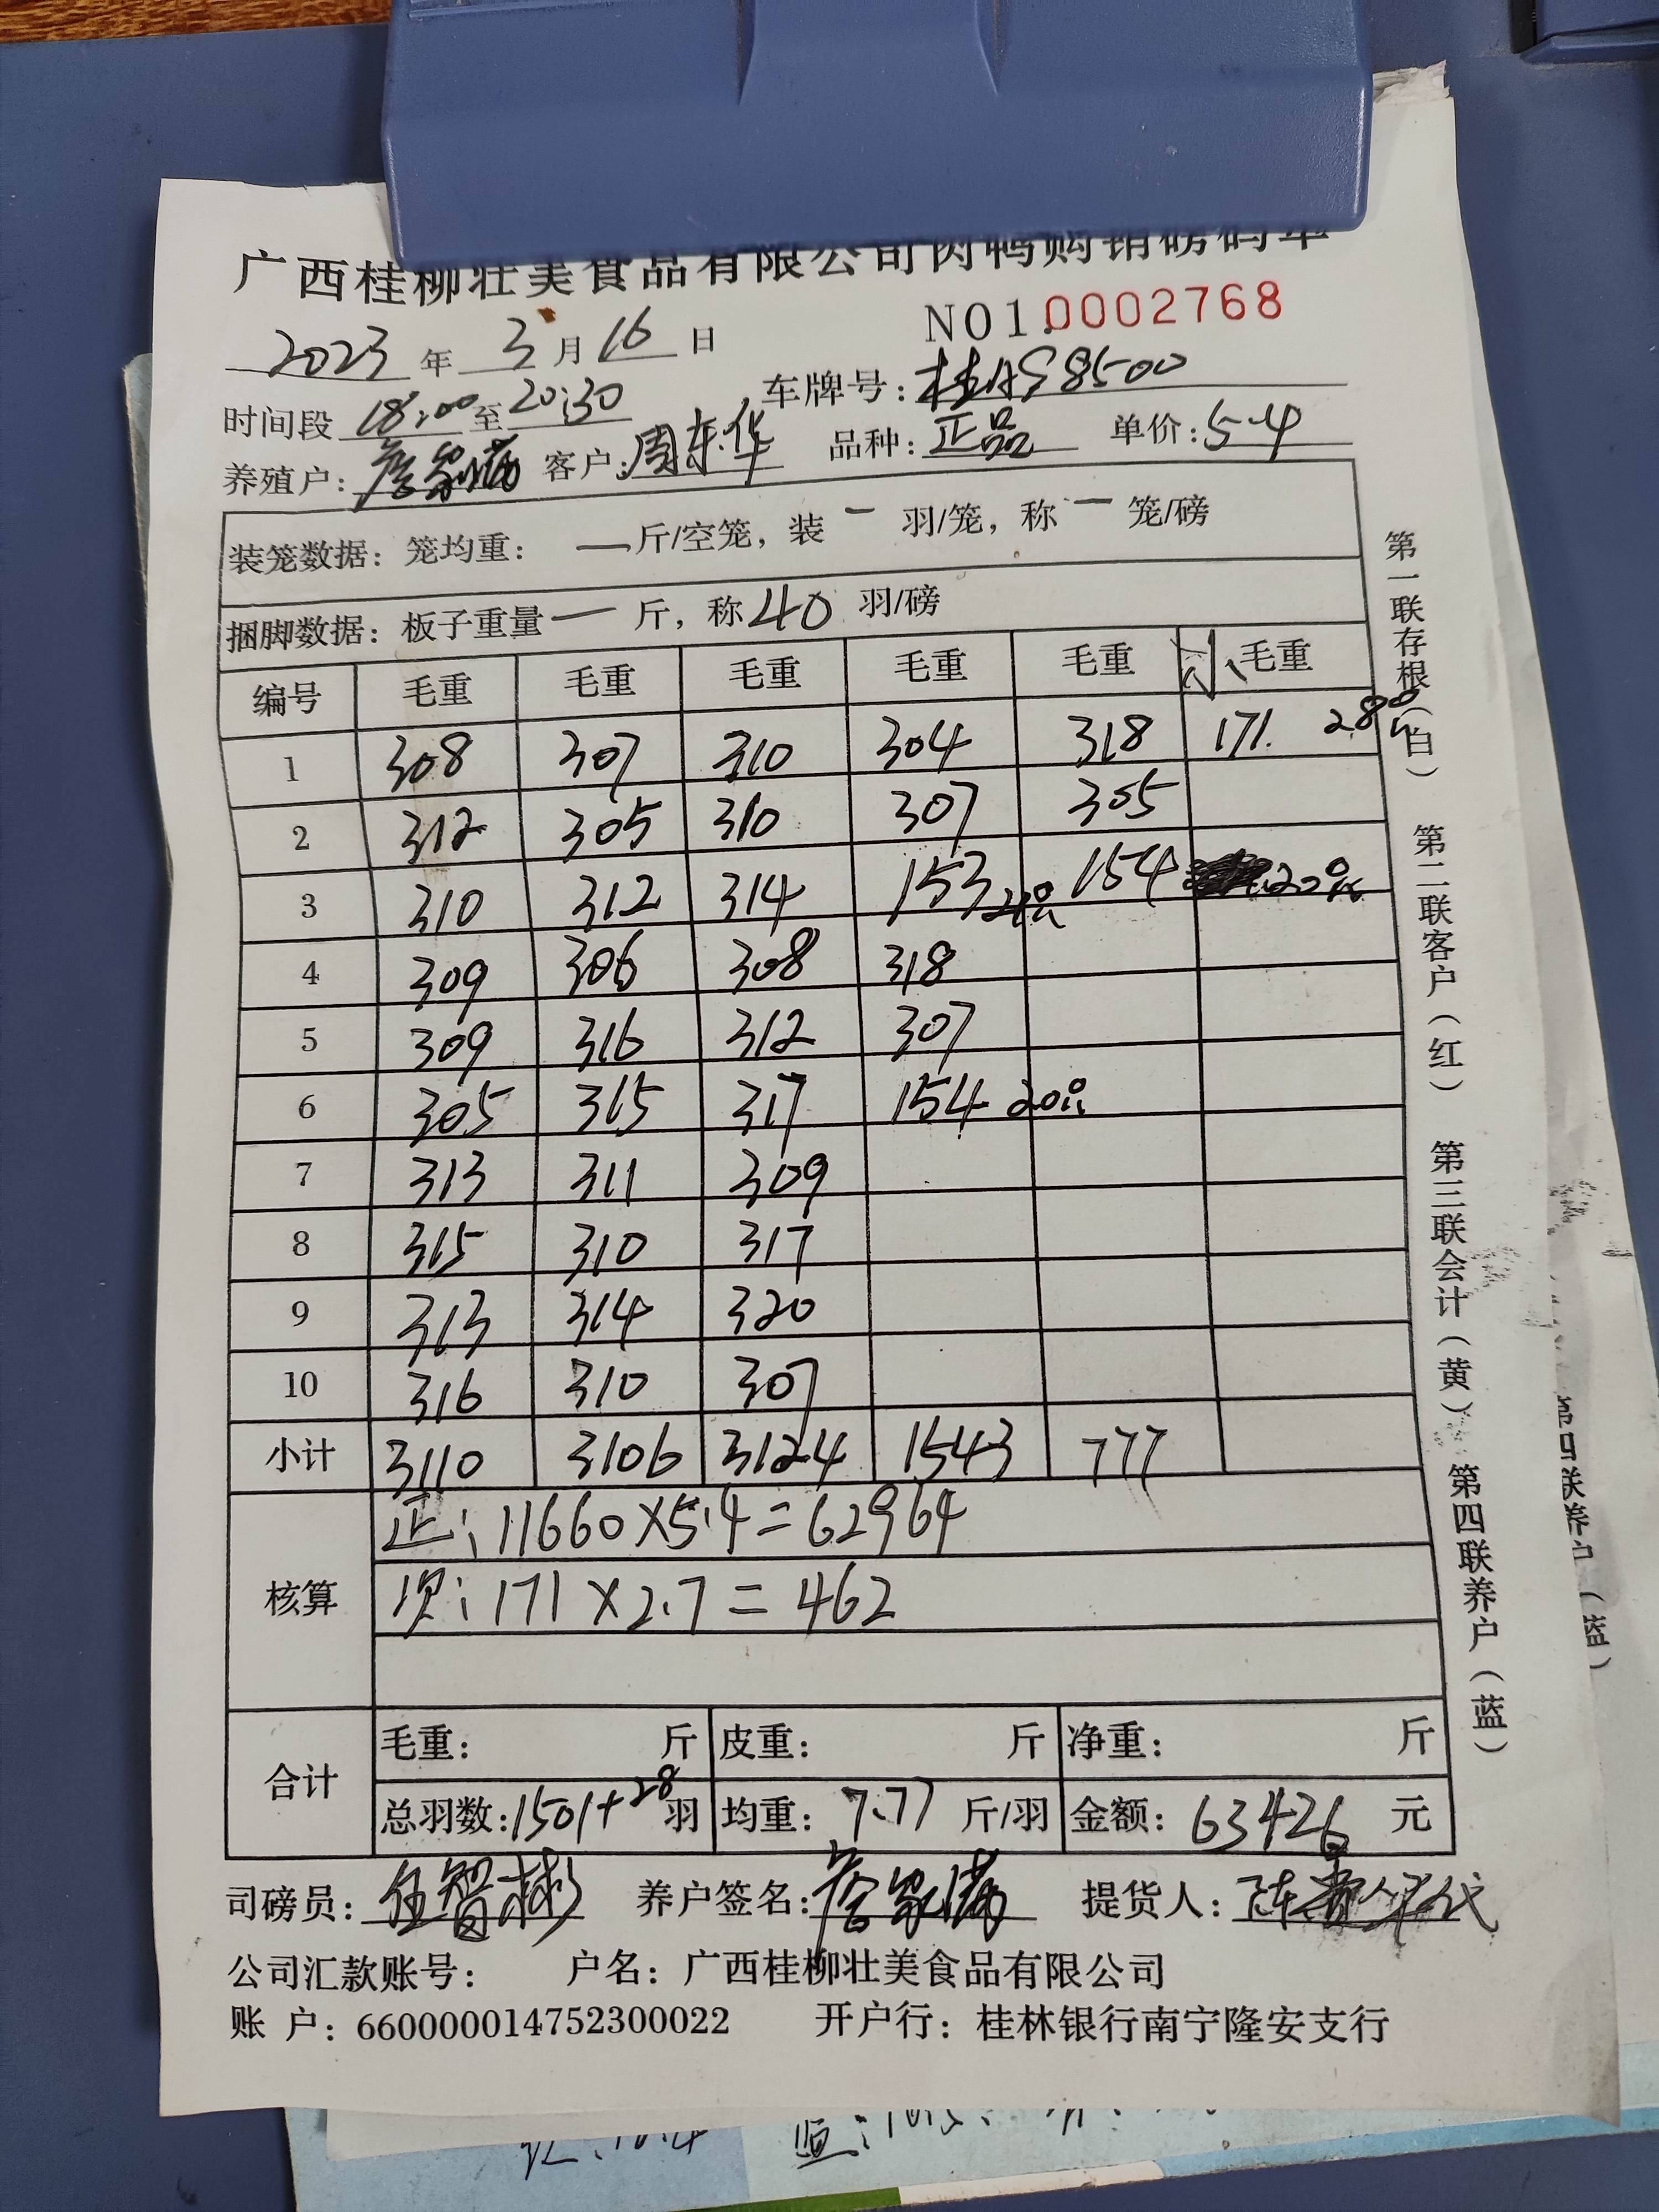 广西桂柳壮美食品有限公司肉鸭购销磅码单
NO1.0002768
2023年 3月16日
时间段 18:00至20:30 车牌号:桂AS8500
养殖户: 客户:周东华 品种:正品 单价:5.4
装笼数据: 笼均重: 一斤/空笼, 装 一 羽/笼, 称 一 笼/磅
捆脚数据: 板子重量 一 斤, 称40 羽/磅
编号 毛重 毛重 毛重 毛重 毛重 毛重
1 308 307 310 304 318 171. 28只
2 312 305 310 307 305
3 310 312 314 153 154 20只
4 309 306 308 318
5 309 316 312 307
6 305 315 317 154 20只
7 313 311 309
8 315 310 317
9 313 314 320
10 316 310 307
小计 3110 3106 3124 1543 777
核算
正: 11660×5.4=62964
次: 171×2.7=462
合计
毛重: 斤 皮重: 斤 净重: 斤
总羽数:1501+28羽 均重: 7.77 斤/羽 金额: 63426 元
司磅员:伍智彬 养户签名: 提货人:
公司汇款账号: 户名: 广西桂柳壮美食品有限公司
账 户: 660000014752300022 开户行: 桂林银行南宁隆安支行
第一联存根(白) 第二联客户(红) 第三联会计(黄) 第四联养户(蓝)
第四联养户(蓝)